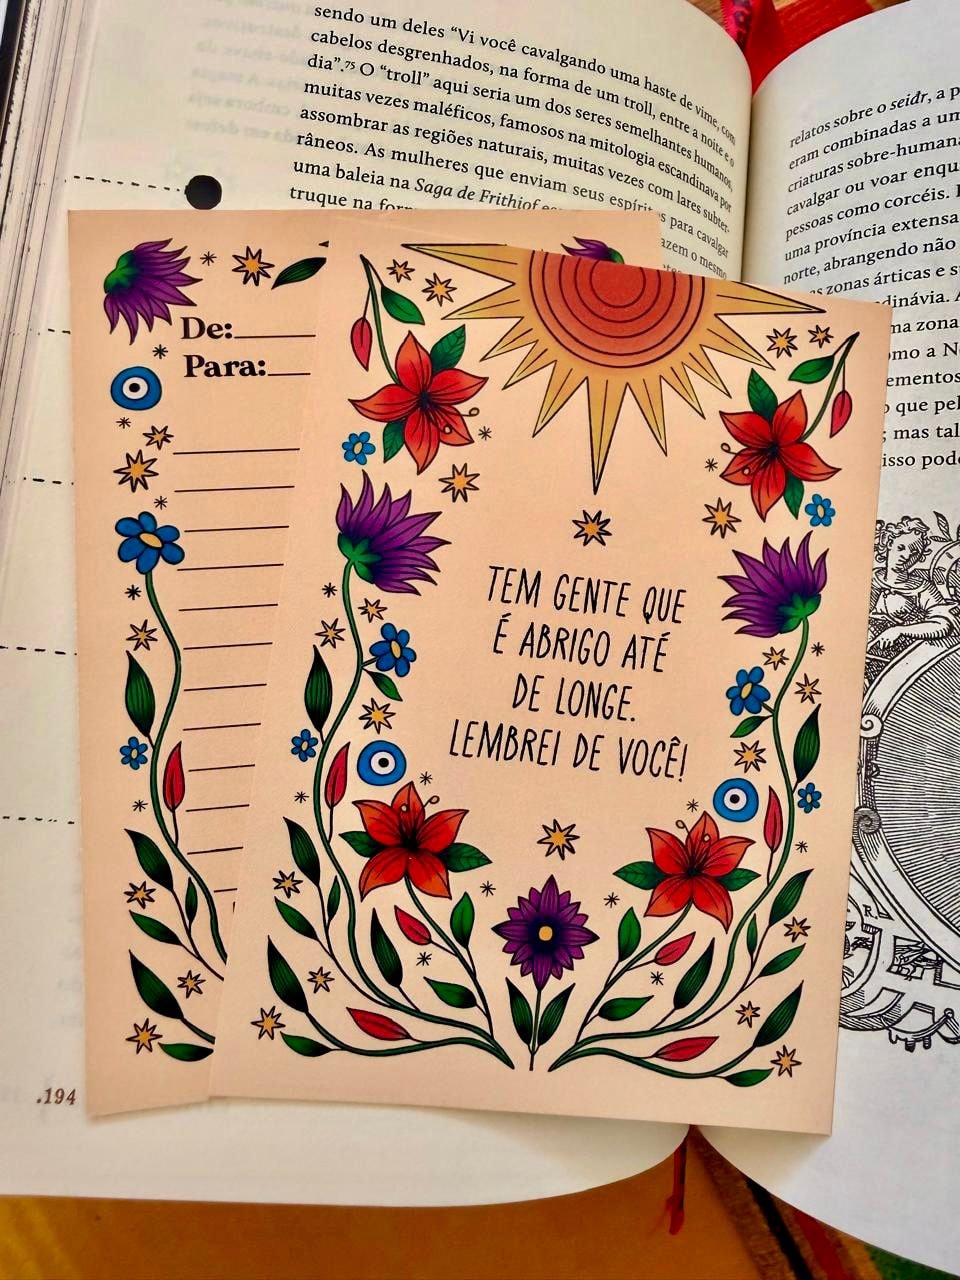 sendo um deles “Vi você cavalgando uma haste de vime, com
cabelos desgrenhados, na forma de um troll, entre a noite e o
dia”.75 O “troll” aqui seria um dos seres semelhantes humanos,
muitas vezes maléficos, famosos na mitologia escandinava por
assombrar as regiões naturais, muitas vezes com lares subter-
râneos. As mulheres que enviam seus espíritos para cavalgar
uma baleia na Saga de Frithiof
truque na
azem o mesmo
relatos sobre o seiðr, a
eram combinadas a um
criaturas sobre-humana
cavalgar ou voar enqu
pessoas como corcéis.
uma província extensa
norte, abrangendo não
as zonas árticas e
dinávia.
ma zona
omo a
ementos
que pel
; mas tal
isso pod
De:
Para:
TEM GENTE QUE
É ABRIGO ATÉ
DE LONGE.
LEMBREI DE VOCÊ!
.194
R.